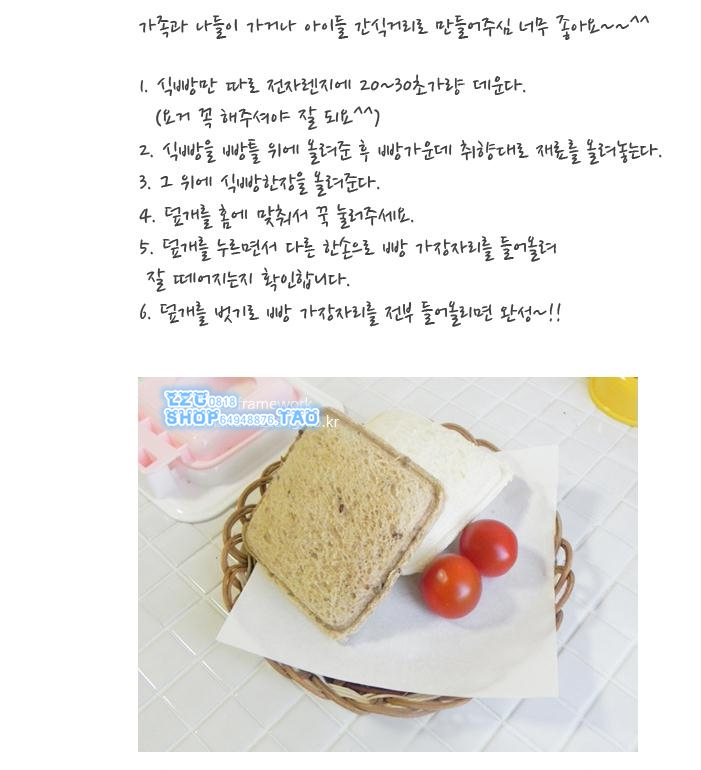 가족과 나들이 가거나 아이들 간식거리로 만들어주심 너무 좋아요~~^^
1. 식빵만 따로 전자렌지에 20~30초가량 데운다.
(요거 꼭 해주셔야 잘 되요^^)
2. 식빵을 빵틀 위에 올려준 후 빵가운데 취향대로 재료를 올려놓는다.
3. 그 위에 식빵한장을 올려준다.
4. 덮개를 홈에 맞춰서 꾹 눌러주세요.
5. 덮개를 누르면서 다른 한손으로 빵 가장자리를 들어올려
잘 떼어지는지 확인합니다.
6. 덮개를 벗기로 빵 가장자리를 전부 들어올리면 완성~!!
ZZG0818 framework
SHOP64948875.TAO .kr